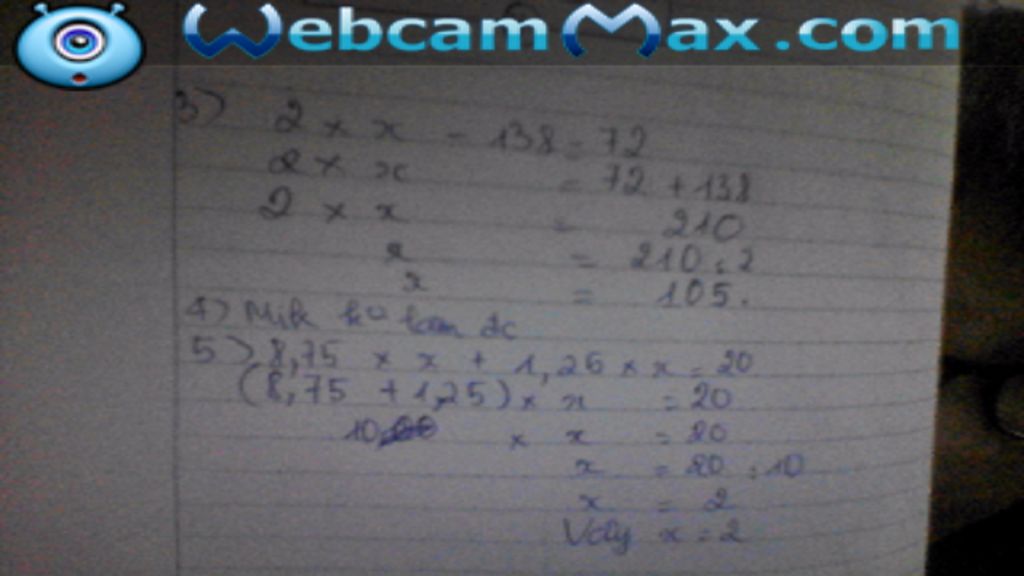 WebcamMax.com
3) 2 × x - 138 = 72
2 × x = 72 + 138
2 × x = 210
x = 210 : 2
x = 105.
4) Mik ko làm dc
5) 8,75 × x + 1,25 × x = 20
(8,75 + 1,25) × x = 20
10 × x = 20
x = 20 : 10
x = 2
Vậy x = 2